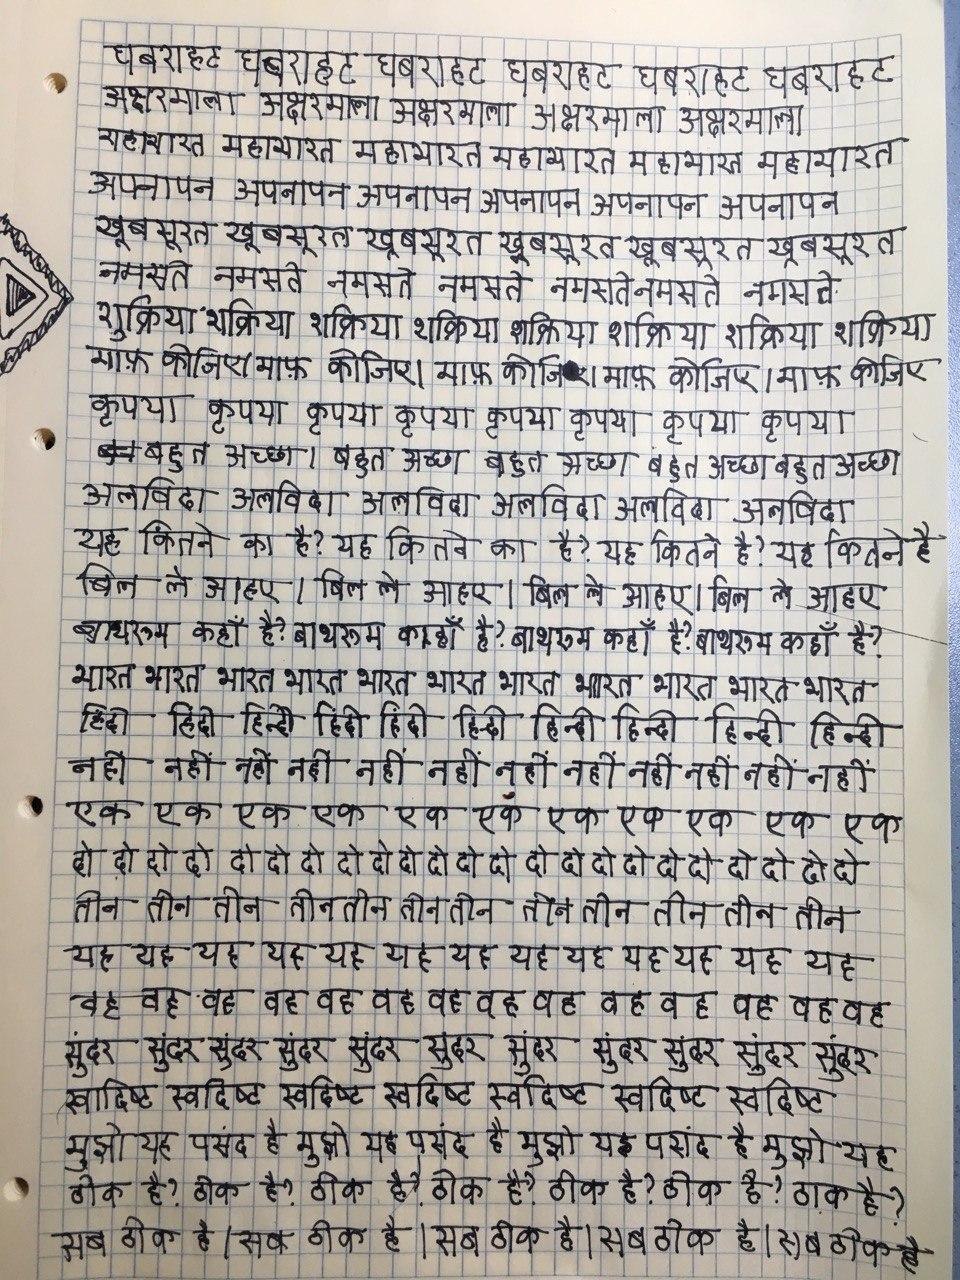 घबराहट घबराहट घबराहट घबराहट घबराहट घबराहट
अक्षरमाला अक्षरमाला अक्षरमाला अक्षरमाला अक्षरमाला
महाभारत महाभारत महाभारत महाभारत महाभारत महाभारत
अपनापन अपनापन अपनापन अपनापन अपनापन अपनापन
खूबसूरत खूबसूरत खूबसूरत खूबसूरत खूबसूरत खूबसूरत
नमसते नमसते नमसते नमसते नमसते नमसते नमसते
शुक्रिया शक्रिया शक्रिया शक्रिया शक्रिया शक्रिया शक्रिया शक्रिया
माफ़ कीजिए। माफ़ कीजिए। माफ़ कीजिए। माफ़ कीजिए। माफ़ कीजिए
कृपया कृपया कृपया कृपया कृपया कृपया कृपया कृपया
बहुत अच्छा। बहुत अच्छा बहुत अच्छा बहुत अच्छा बहुत अच्छा
अलविदा अलविदा अलविदा अलविदा अलविदा अलविदा
यह कितने का है? यह कितने का है? यह कितने है? यह कितने है
बिल ले आहए। बिल ले आहए। बिल ले आहए। बिल ले आहए
बाथरूम कहाँ है? बाथरूम काहाँ है? बाथरूम कहाँ है? बाथरूम कहाँ है?
भारत भारत भारत भारत भारत भारत भारत भारत भारत भारत भारत
हिंदी हिंदी हिन्दी हिंदी हिंदी हिन्दी हिन्दी हिन्दी हिन्दी हिन्दी
नहीं नहीं नहीं नहीं नहीं नहीं नहीं नहीं नहीं नहीं नहीं नहीं
एक एक एक एक एक एक एक एक एक एक एक
दो दो दो दो दो दो दो दो दो दो दो दो दो दो दो दो दो दो दो दो दो दो दो
तीन तीन तीन तीन तीन तीन तीन तीन तीन तीन तीन तीन
यह यह यह यह यह यह यह यह यह यह यह यह यह
वह वह वह वह वह वह वह वह वह वह वह वह वह वह
सुंदर सुंदर सुंदर सुंदर सुंदर सुंदर सुंदर सुंदर सुंदर सुंदर सुंदर
स्वादिष्ट स्वदिष्ट स्वदिष्ट स्वदिष्ट स्वदिष्ट स्वदिष्ट स्वदिष्ट
मुझो यह पसंद है मुझो यह पसंद है मुझो यह पसंद है मुझो यह
ठीक है? ठीक है? ठीक है? ठीक है? ठीक है? ठीक है? ठाक है?
सब ठीक है। सब ठीक है। सब ठीक है। सब ठीक है। सब ठीक है